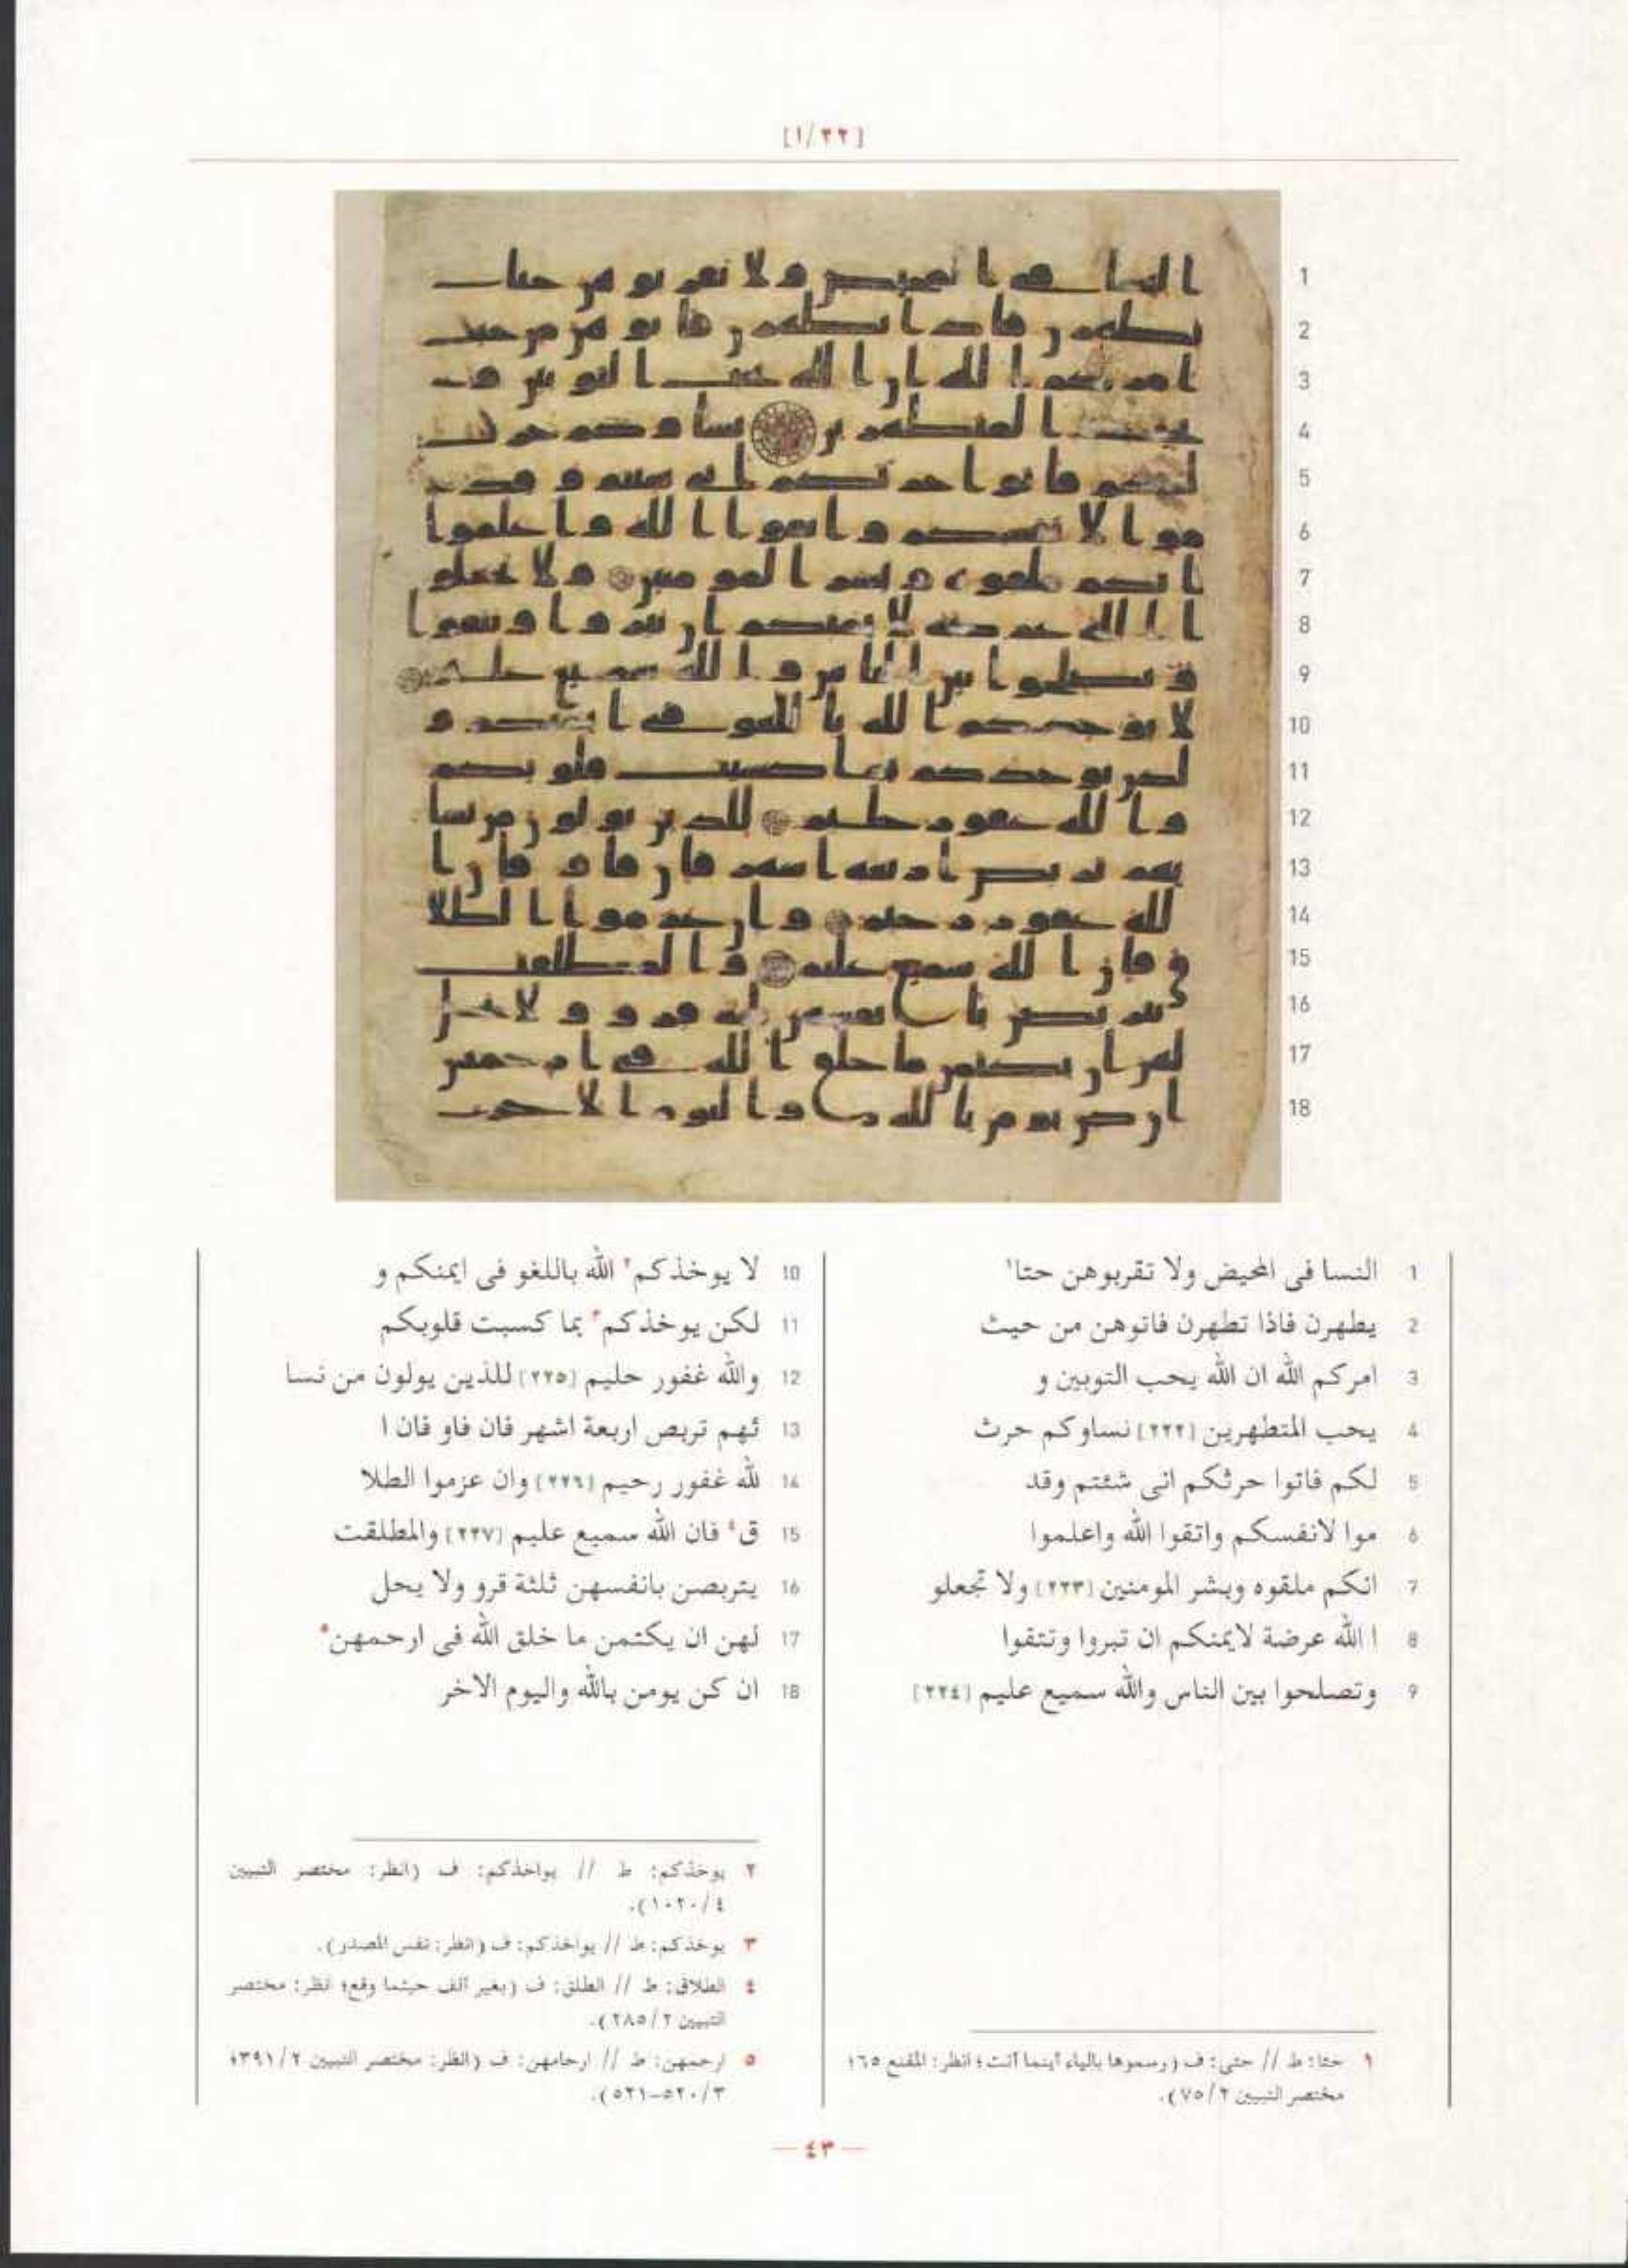 [١/٢٢]
1 النسا فى المحيض ولا تقربوهن حتا¹
2 يطهرن فاذا تطهرن فاتوهن من حيث
3 امركم الله ان الله يحب التوبين و
4 يحب المتطهرين [٢٢٢] نساوكم حرث
5 لكم فاتوا حرثكم انى شئتم وقد
6 موا لانفسكم واتقوا الله واعلموا
7 انكم ملقوه وبشر المومنين [٢٢٣] ولا تجعلو
8 ا الله عرضة لايمنكم ان تبروا وتتقوا
9 وتصلحوا بين الناس والله سميع عليم [٢٢٤]
١ حتا: ط // حتى: ف (رسموها بالياء أينما أتت؛ انظر: المقنع ٦٥؛
مختصر التبيين ٧٥/٢).
10 لا يوخذكم² الله باللغو فى ايمنكم و
11 لكن يوخذكم³ بما كسبت قلوبكم
12 والله غفور حليم [٢٢٥] للذين يولون من نسا
13 ئهم تربص اربعة اشهر فان فاو فان ا
14 لله غفور رحيم [٢٢٦] وان عزموا الطلا
15 ق⁴ فان الله سميع عليم [٢٢٧] والمطلقت
16 يتربصن بانفسهن ثلثة قرو ولا يحل
17 لهن ان يكتمن ما خلق الله فى ارحمهن⁵
18 ان كن يومن بالله واليوم الاخر
٢ يوخذكم: ط // يواخذكم: ف (انظر: مختصر التبيين
١٠٢٠/٤).
٣ يوخذكم: ط // يواخذكم: ف (انظر: نفس المصدر).
٤ الطلاق: ط // الطلق: ف (بغير ألف حيثما وقع؛ انظر: مختصر
التبيين ٢٨٥/٢).
٥ ارحمهن: ط // ارحامهن: ف (انظر: مختصر التبيين ٣٩١/٢؛
٥٢٠/٣-٥٢١).
— ٤٣ —